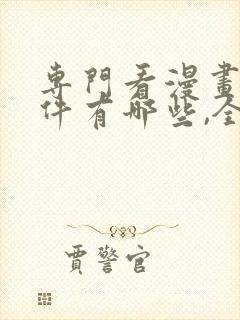 專門看漫畫
件有哪些,全
賈警官